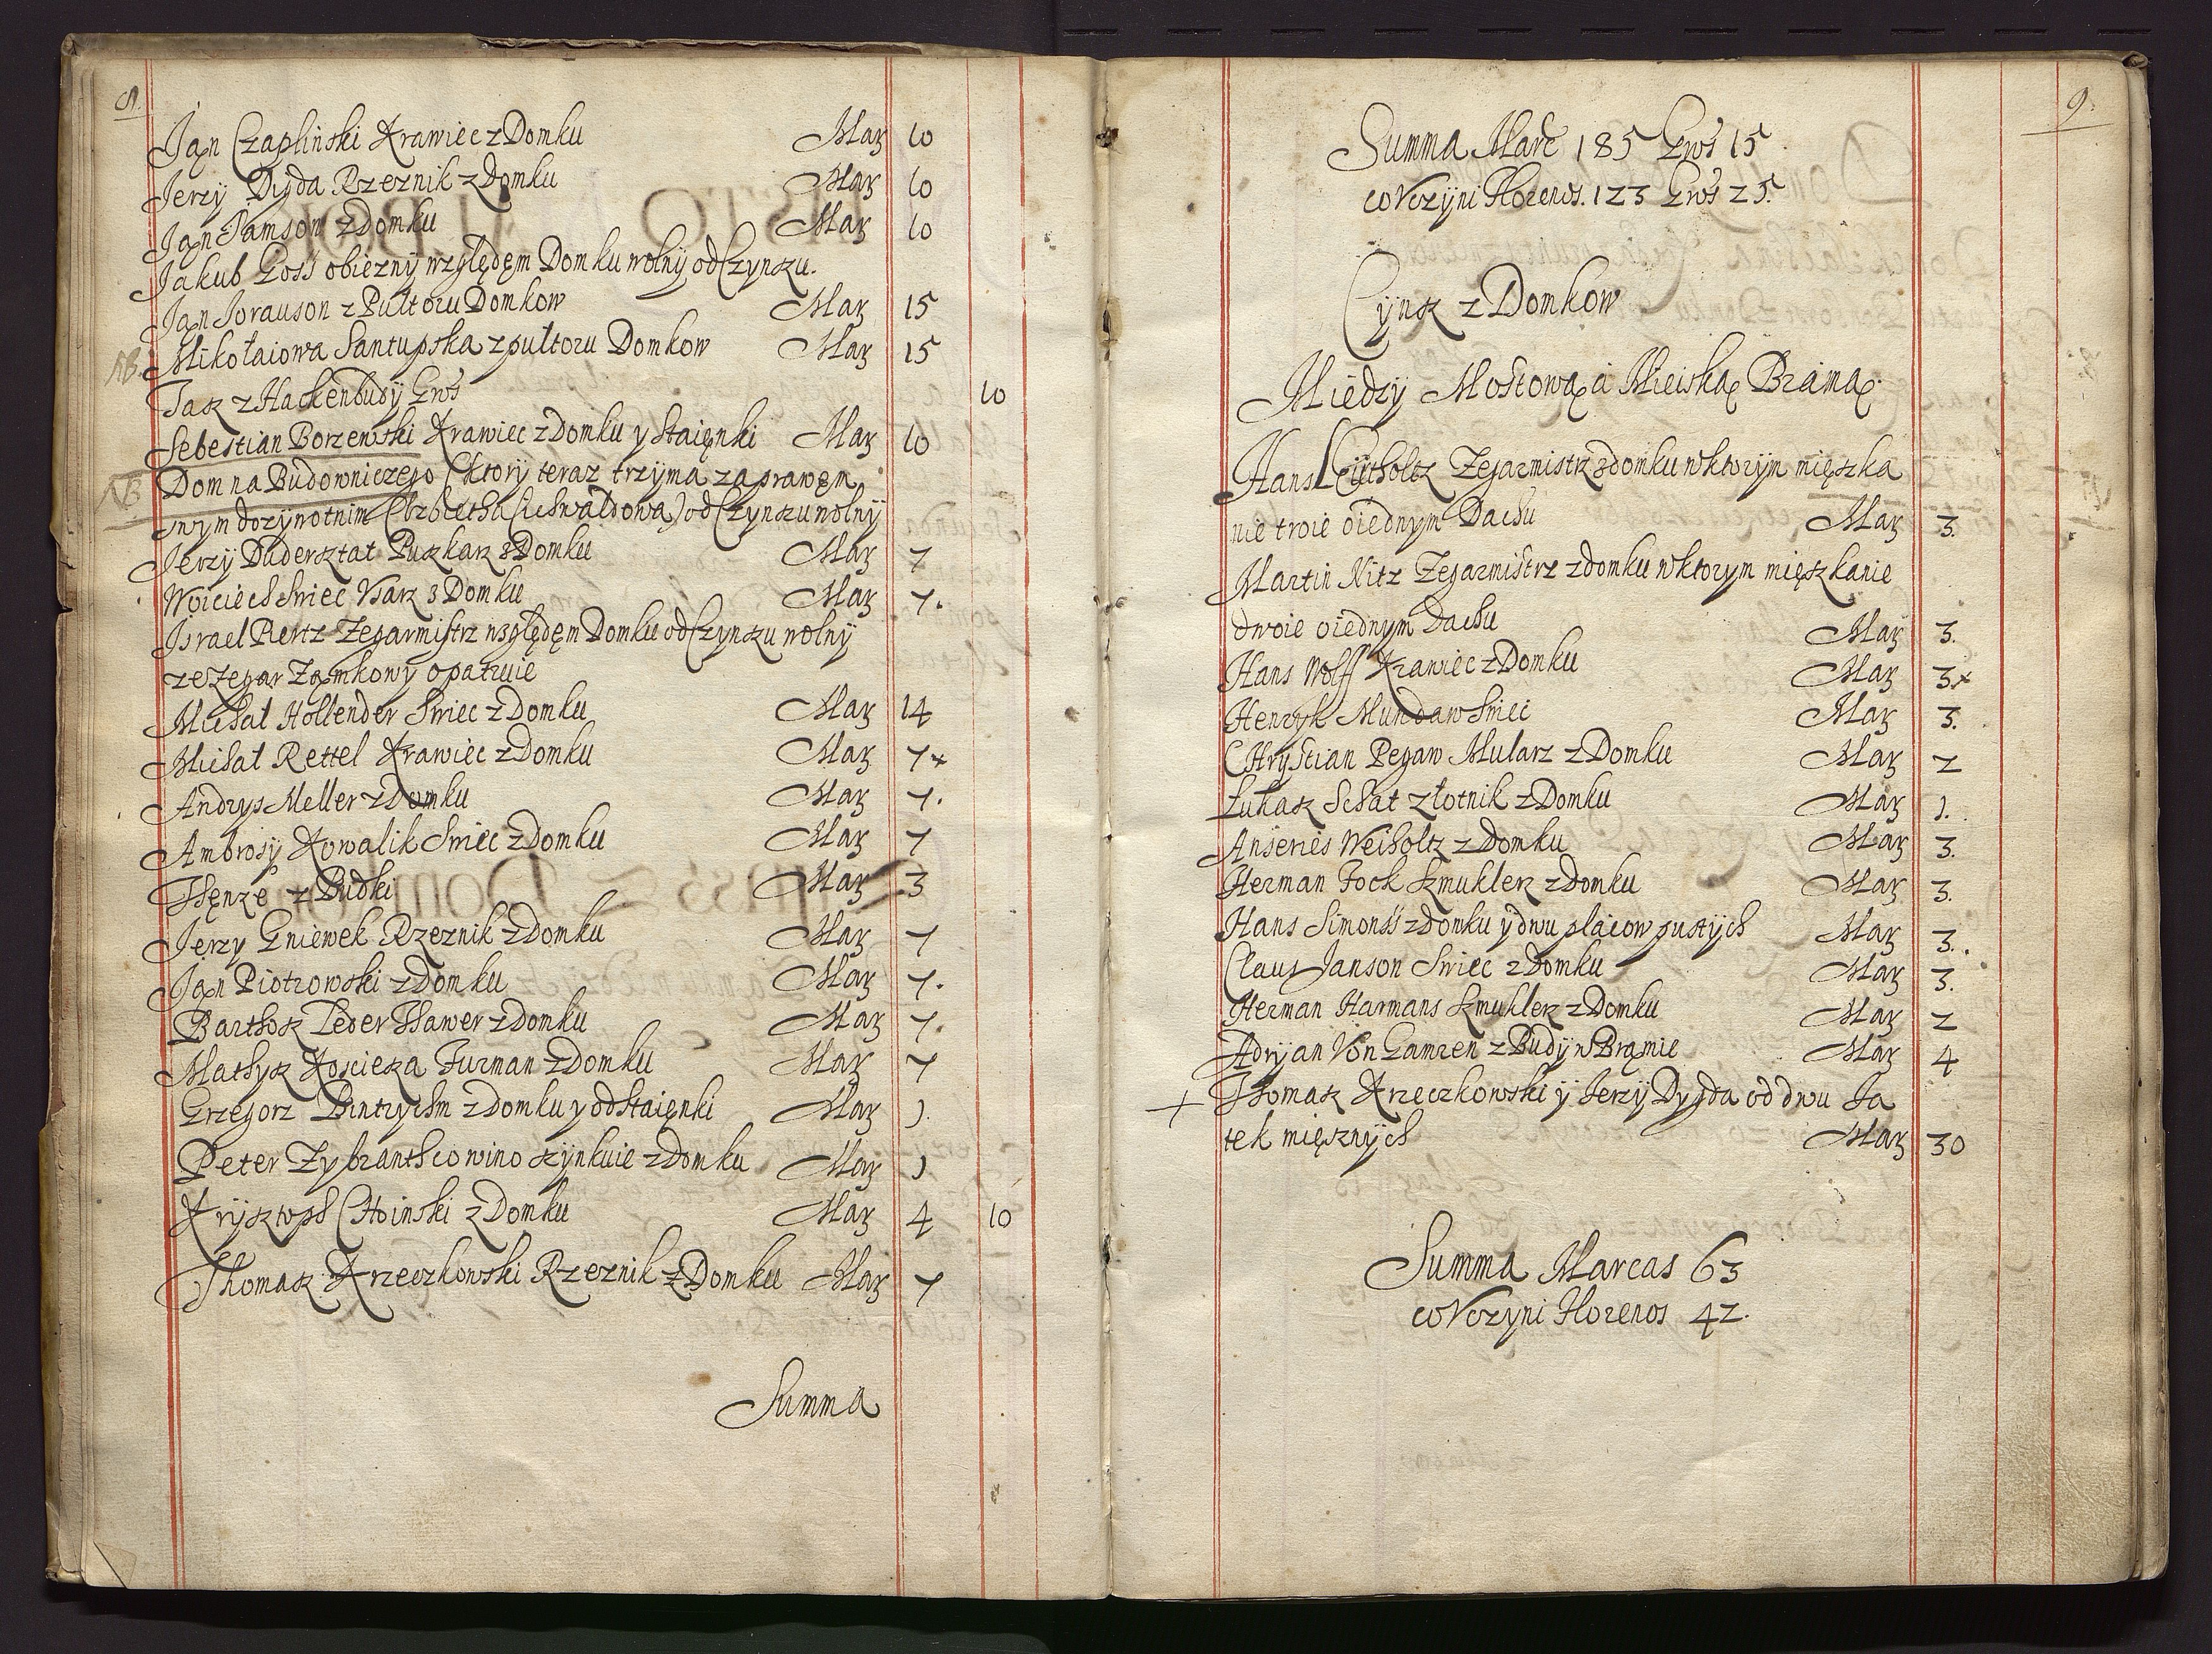 8.
Jan Czaplinski Krawiec z Domku Marz 10
Jerzy Dyda Rzeznik z Domku Marz 10
Jan Samson z Domku Marz 10
Jakub Goss obiezny względęm Domku wolny od Czynszu.
Jan Jorauson z Pułtoru Domkow Marz 15
NB. Mikołaiowa Santupska z pułtoru Domkow Marz 15
Task z Hackenbudÿ Gros 10
Sebestian Borzewski Krawiec z Domku y Staięnki Marz 10
NB Dom na Budowniczego (ktorÿ teraz trzyma za prawęm
swym dozÿwotnim Elzbietha od Czynszu wolnÿ
Jerzÿ Dudersztat Puszkarz z Domku Marz 7
Woiciech Swiec z Domku Marz 7.
Israel Piertz Zegarmistrz względęm Domku od Czynszu wolnÿ
ze Zegar Zamkowÿ opatruie
Michał Hollender Swiec z Domku Marz 14
Michał Rettel Krawiec z Domku Marz 7+
Andrys Meller z Domku Marz 7.
Ambrosÿ Kowalik Swiec z Domku Marz 7
z Budki Marz 3
Jerzy Gniewek Rzeznik z Domku Marz 7
Jan Piotrowski z Domku Marz 7.
Barthosz Leder Thawer z Domku Marz 7.
Mathysz Koscieza Furman z Domku Marz 7
Grzegorz z Domku y od Staięnki Marz 1.
Peter Zybranth co wino szÿnkuie z Domku Marz 1
Krÿsztoph Choinski z Domku Marz 4 10
Thomasz Krzeczkowski Rzeznik z Domku Marz 7
Summa
9.
Summa Marc 185 Gros 15
co Vczÿni Florenos. 123 Gros 25.
Cÿnsz z Domkow
Miedzÿ Mostową a Mieiską Bramą.
Hans Eichholtz Zegarmistrz z domku w ktorÿm mięszka
nie troie oiednym Dachu Marz 3.
Martin Nitz Zegarmistrz z domku w ktorym mięszkanie
dwoie oiednym Dachu Marz 3.
Hans Wolff Krawiec z Domku Marz 3+
Henryk Mundaw Swiec Marz 3.
Chrÿstian Pegaw Mularz z Domku Marz 2
Łukasz Schat złotnik z Domku Marz 1.
Anseries Weiholtz z Domku Marz 3.
Herman Fock Szmuklerz z Domku Marz 3.
Hans Simonss z domku y dwu placow pustÿch Marz 3.
Claus Janson Swiec z Domku Marz 3.
Herman Harmans Szmuklerz z Domku Marz 2
Adrÿan Von Gamren z Budÿ w Bramie Marz 4
+ Thomasz Krzeczkowski ÿ Jerzÿ Dyda od dwu Ja
tek mięsznÿch Marz 30
Summa Marcas 63
co Vczyni Florenos 42.